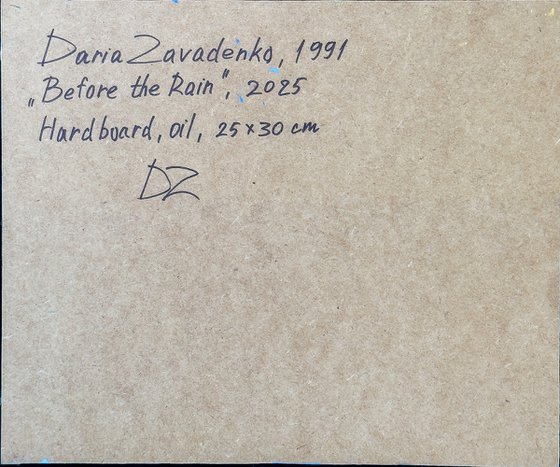 Daria Zavadenko, 1991
„Before the Rain", 2025
Hardboard, oil, 25x30 cm
DZ